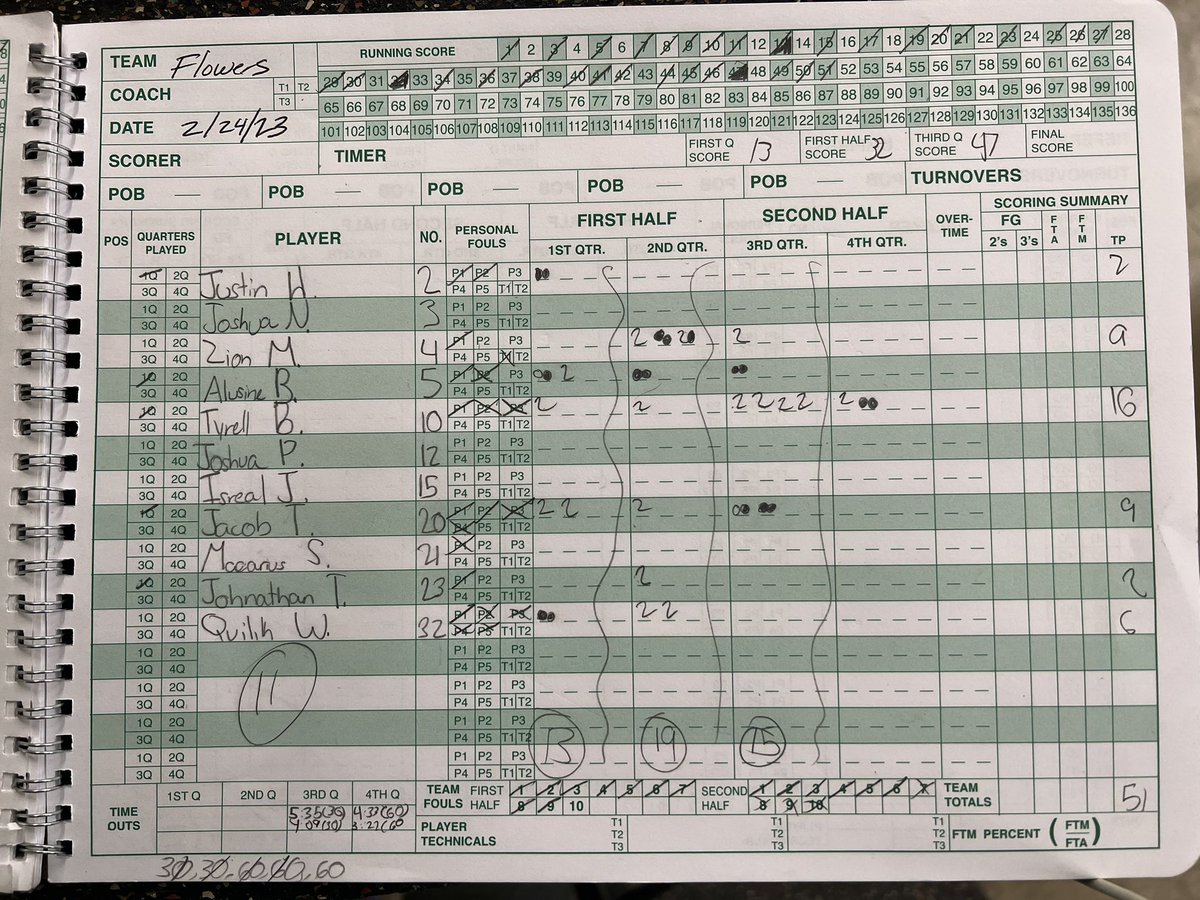 TEAM Flowers
RUNNING SCORE
1 2 3 4 5 6 7 8 9 10 11 12 13 14 15 16 17 18 19 20 21 22 23 24 25 26 27 28
29 30 31 32 33 34 35 36 37 38 39 40 41 42 43 44 45 46 47 48 49 50 51 52 53 54 55 56 57 58 59 60 61 62 63 64
65 66 67 68 69 70 71 72 73 74 75 76 77 78 79 80 81 82 83 84 85 86 87 88 89 90 91 92 93 94 95 96 97 98 99 100
101 102 103 104 105 106 107 108 109 110 111 112 113 114 115 116 117 118 119 120 121 122 123 124 125 126 127 128 129 130 131 132 133 134 135 136
COACH T1 T2 T3
DATE 2/24/23
SCORER TIMER FIRST Q SCORE 13 FIRST HALF SCORE 32 THIRD Q SCORE 47 FINAL SCORE
POB — POB — POB — POB — POB — TURNOVERS
POS QUARTERS PLAYED PLAYER NO. PERSONAL FOULS FIRST HALF SECOND HALF OVER-TIME SCORING SUMMARY
1ST QTR. 2ND QTR. 3RD QTR. 4TH QTR. FG 2's 3's FTA FTM TP
1Q 2Q 3Q 4Q Justin H. 2 P1 P2 P3 P4 P5 T1 T2 2
1Q 2Q 3Q 4Q Joshua N. 3 P1 P2 P3 P4 P5 T1 T2
1Q 2Q 3Q 4Q Zion M. 4 P1 P2 P3 P4 P5 T2 2 2 2 9
1Q 2Q 3Q 4Q Alusine B. 5 P1 P2 P3 P4 P5 T1 T2 2
1Q 2Q 3Q 4Q Tyrell B. 10 P1 P2 P3 P4 P5 T1 T2 2 2 2 2 2 2 2 16
1Q 2Q 3Q 4Q Joshua P. 12 P1 P2 P3 P4 P5 T1 T2
1Q 2Q 3Q 4Q Isreal J. 15 P1 P2 P3 P4 P5 T1 T2
1Q 2Q 3Q 4Q Jacob T. 20 P1 P2 P3 P4 P5 T1 T2 2 2 2 9
1Q 2Q 3Q 4Q S. 21 P1 P2 P3 P4 P5 T1 T2
1Q 2Q 3Q 4Q Johnathan T. 23 P1 P2 P3 P4 P5 T1 T2 2 2
1Q 2Q 3Q 4Q Quilih W. 32 P1 P2 P3 P4 P5 T1 T2 2 2 6
1Q 2Q 3Q 4Q P1 P2 P3 P4 P5 T1 T2
1Q 2Q 3Q 4Q 11 P1 P2 P3 P4 P5 T1 T2
1Q 2Q 3Q 4Q P1 P2 P3 P4 P5 T1 T2 13 19 15
1Q 2Q 3Q 4Q P1 P2 P3 P4 P5 T1 T2
TIME OUTS 1ST Q 2ND Q 3RD Q 4TH Q
5:35(30) 4:33(60)
4:09(30) 3:27(60
TEAM FOULS FIRST HALF 1 2 3 4 5 6 7 8 9 10 SECOND HALF 1 2 3 4 5 6 7 8 9 10 TEAM TOTALS 51
PLAYER TECHNICALS T1 T2 T3 T1 T2 T3 T1 T2 T3 FTM PERCENT (FTM FTA)
30,30,60,60,60